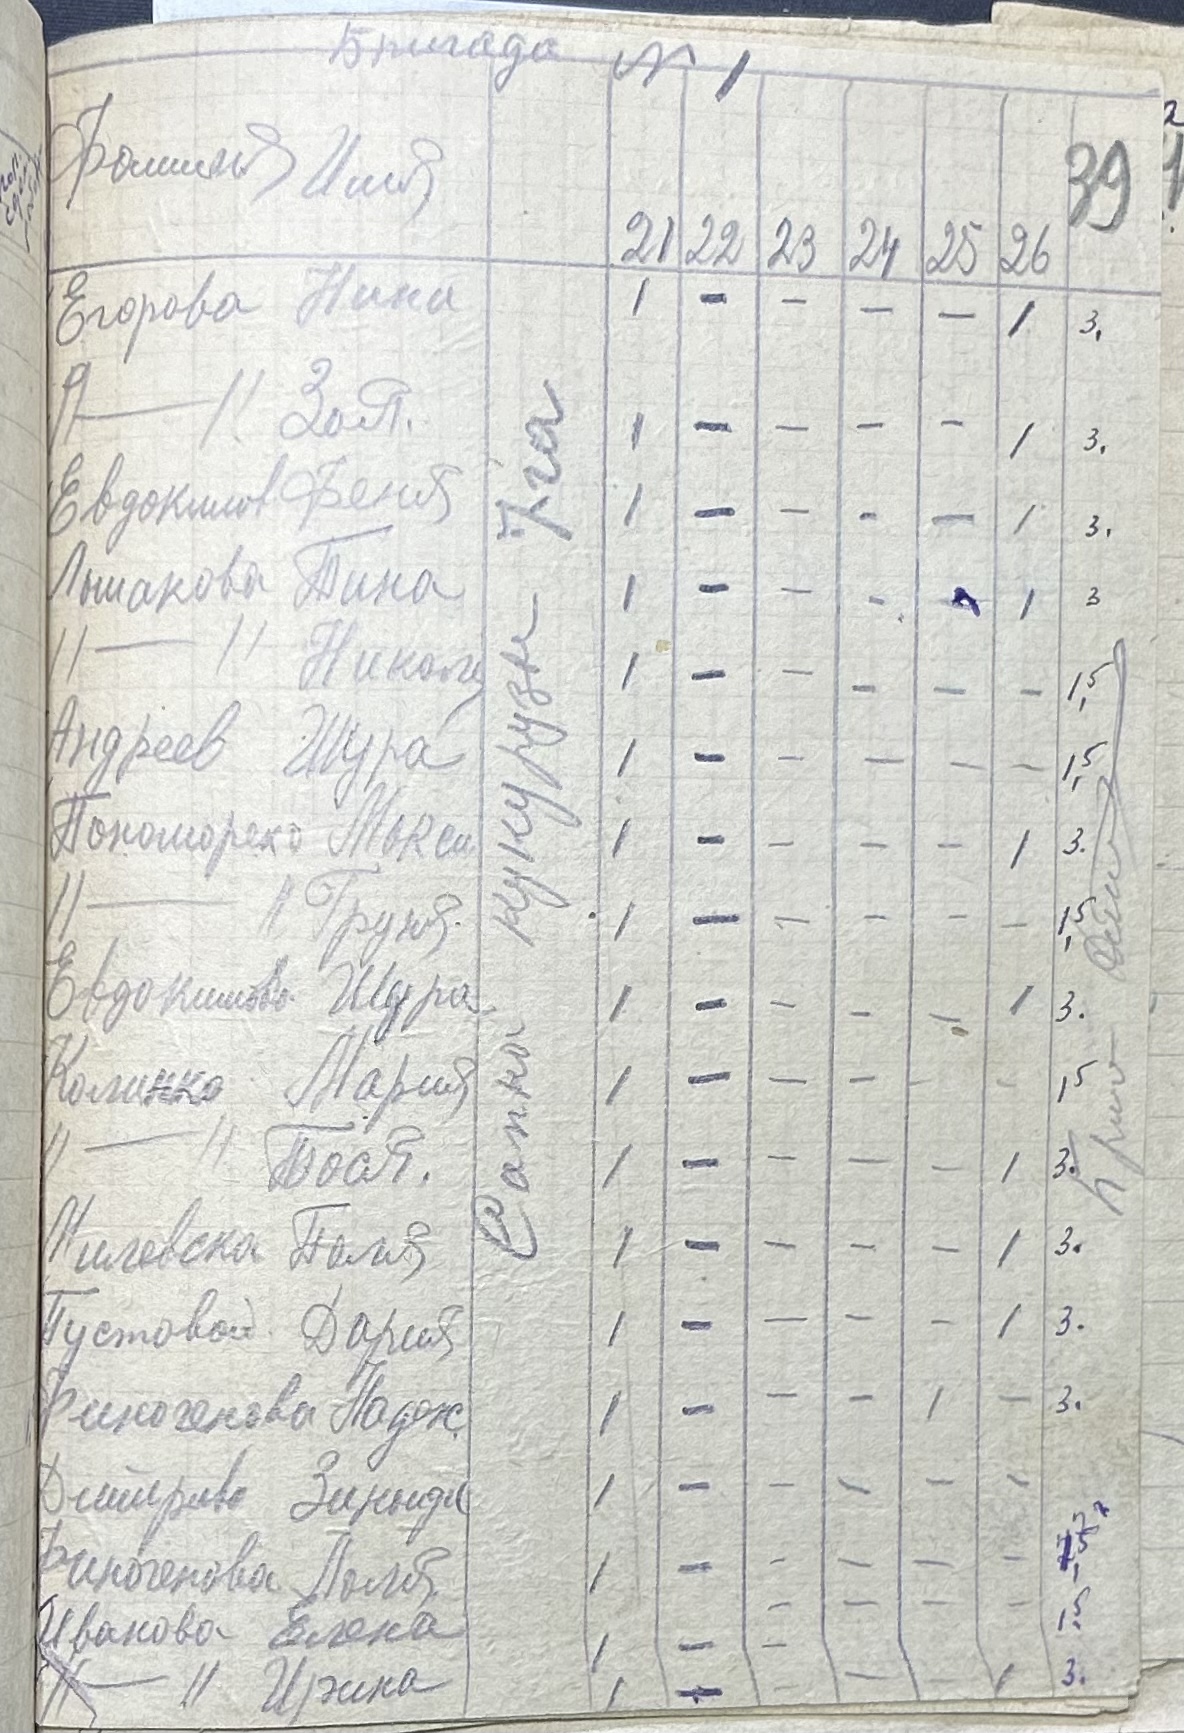 Бригада № 1
Фамилия Имя 21 22 23 24 25 26 39
Егорова Нина 1 - - - - 1 3.
11 — 11 Зоя. 1 - - - - 1 3.
Евдокимов Феня 1 - - - - 1 3.
Лымакова Тина 1 - - - 1 3
11 — 11 Никола 1 - - - - - 1,5
Андреев Шура 1 - - - - - 1,5
Пономорехо Макси 1 - - - - 1 3.
11 — 11 Груня. 1 - - - - - 1,5
Евдокимова Шура 1 - - - - 1 3.
Калинко Мария 1 - - - - - 1 5
11 — 11 Таст. 1 - - - - 1 3.
Миловска Поля 1 - - - - 1 3.
Пустовой Дария 1 - - - - 1 3.
Финогенова Надеж 1 - - - 1 - 3.
Дмитрова Зинаида 1 - - - - -
Финогенова Поля 1 - - - - - 1,5
Иванова Елена 1 - - - - - 1.5
11 — 11 Ирина 1 - - - - 1 3.
Сапка кукурузы 7 га